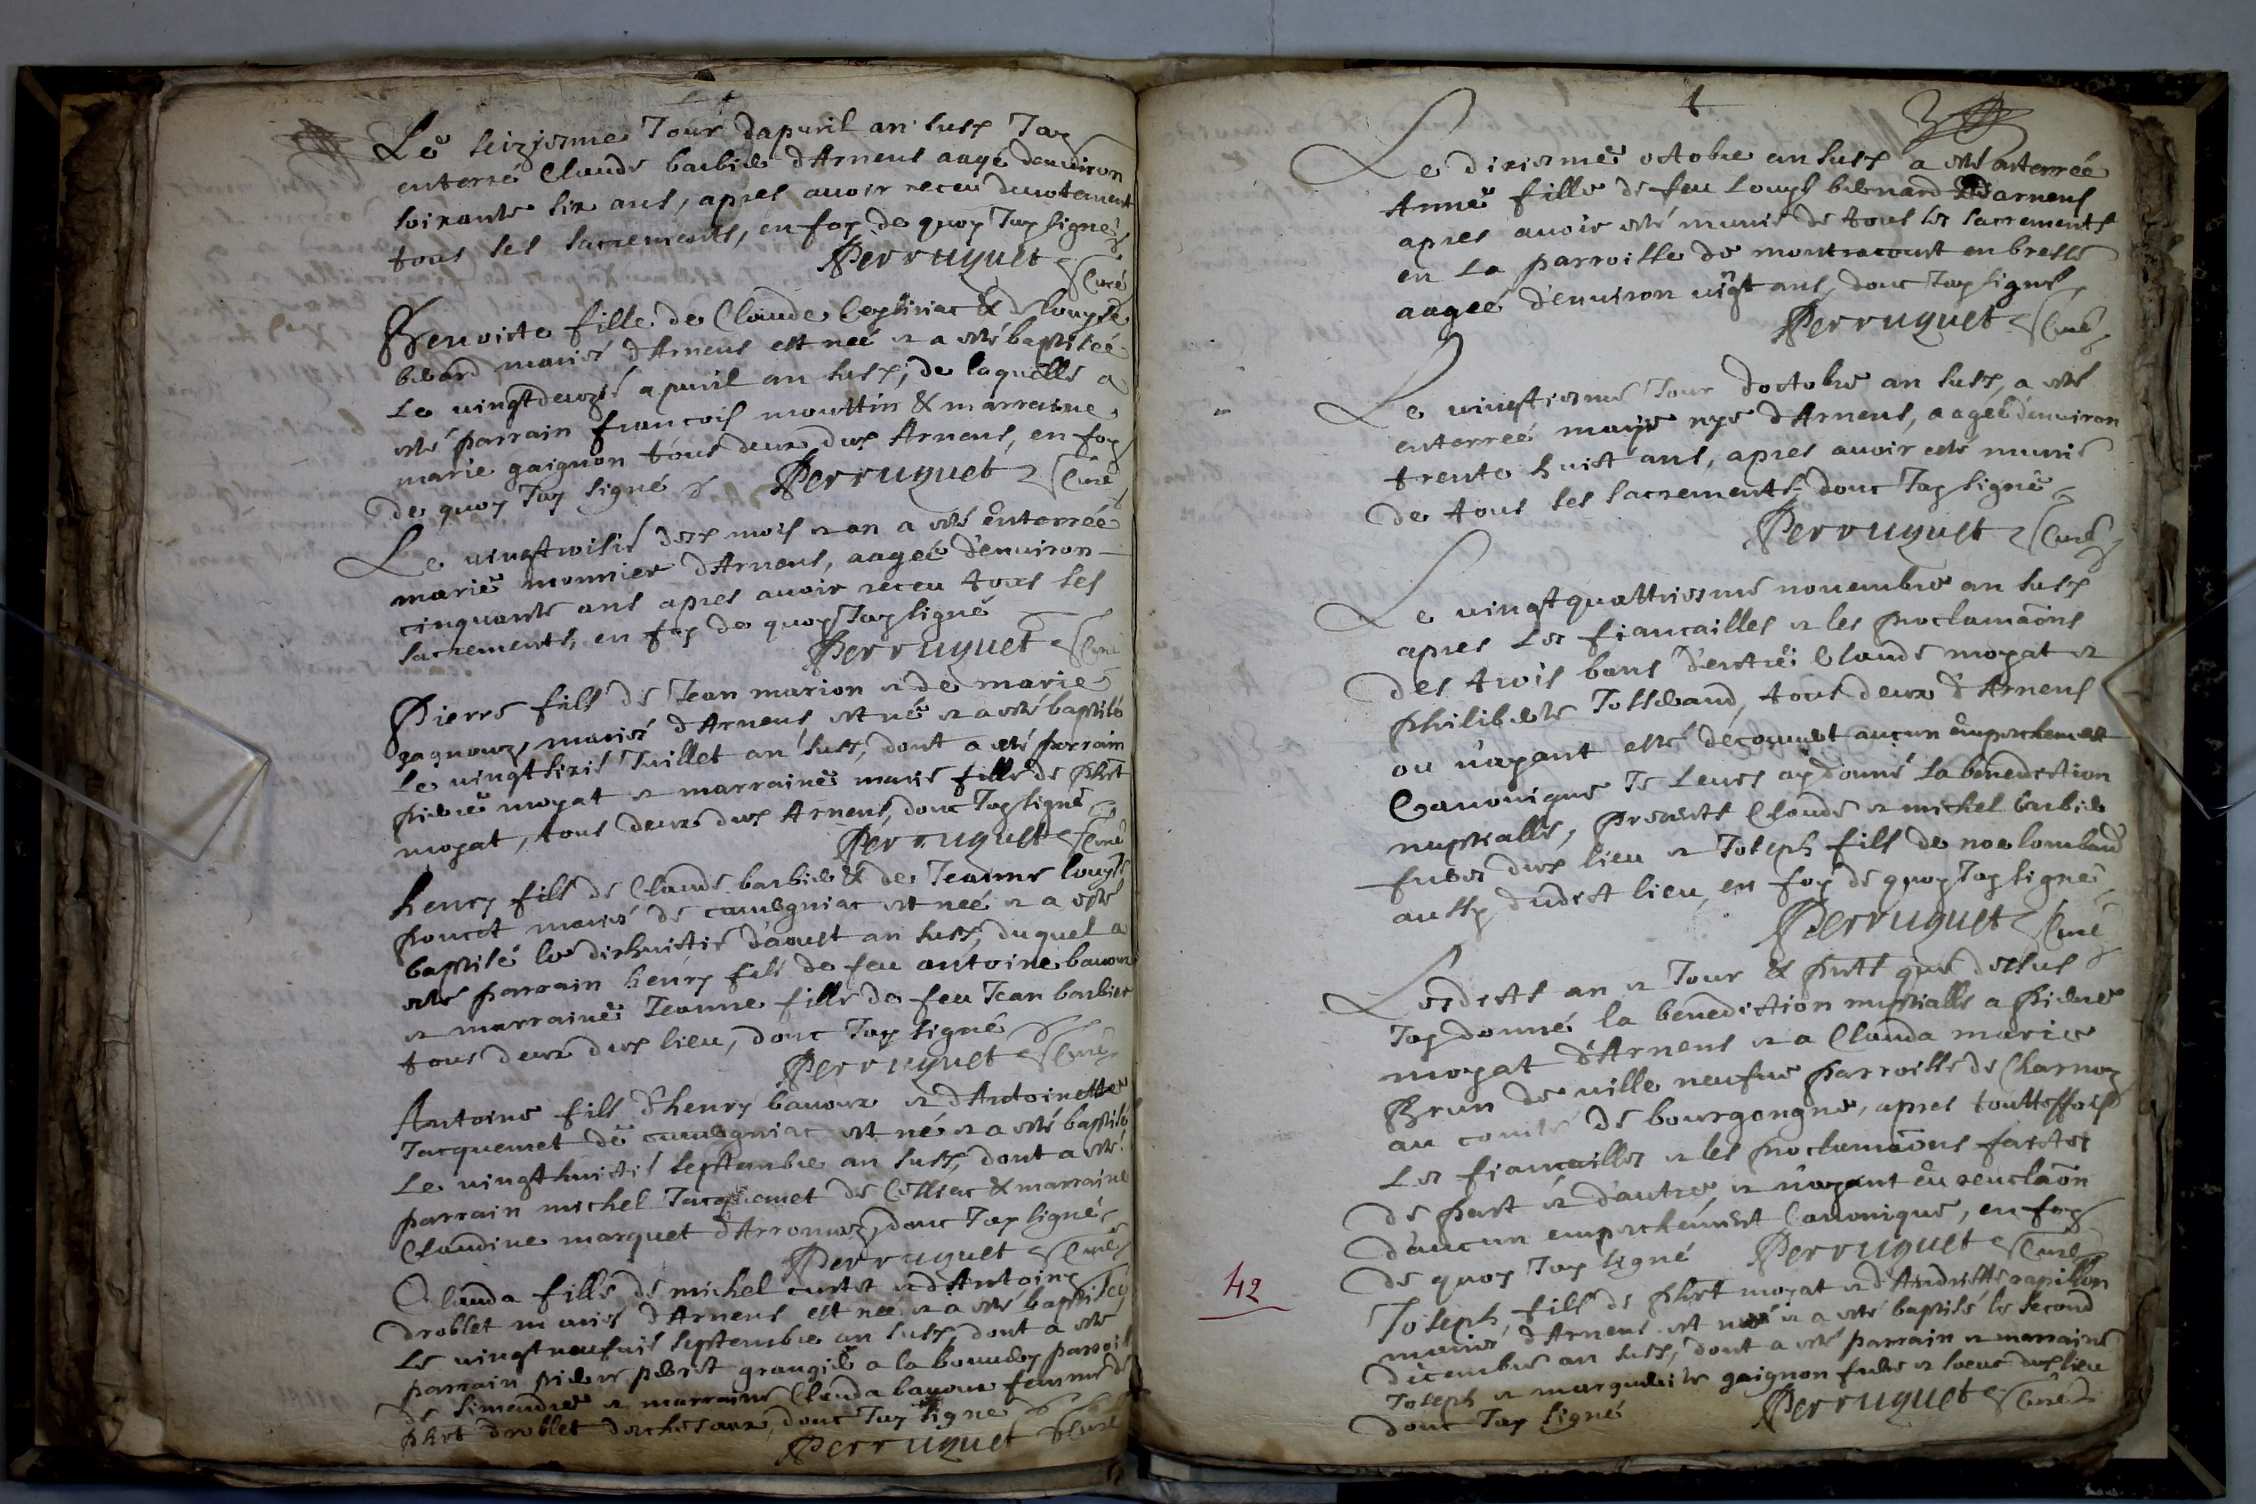 Le seiziesme Jour dapuril an susd Jay
enterré Claude barbier d'Arnens aagé denuiron
soixante six ans, apres auoir receu deuotement
tous ses sacrements, en foy de quoy Jay signé
Perruquet Curé
Benoiste fille de Claude & de louyse
mariés d'Arnens est neé et a esté baptiseé
Le vingtdeuxie apuril an susd, de laquelle a
esté parrain francois mouttin & marraine
marie gaignon tous deux dud Arnens, en foy
de quoy Jay signé Perruquet Curé
Le vingtroisie desd mois et an a esté enterreé
marie monnier d'Arnens, aageé d'enuiron
cinquante ans apres auoir receu tous ses
sacrements, en foy de quoy Jay signé
Perruquet Curé
Pierre fils de Jean marion et de marie
gagnoux, mariés d'Arnens est né et a esté baptisé
Le vingtsixie Juillet an susd, dont a esté parrain
pierre moyat et marraine marie fille de phbt
moyat, tous deux dud Arnens, donc Jay signé
Perruquet Curé
henry fils de Claude barbier & de Jeanne louyse
poncet mariés de cauegniac est neé et a esté
baptisé le dixhuictie d'aoust an susd, duquel a
esté parrain henry fils de feu antoine bauoux
et marraine Jeanne fille de feu Jean barbier
tous deux dud lieu, donc Jay signé
Perruquet Curé
Antoine fils d'henry bauoux et d'Antoinette
Jacquemet de cauegniac est né et a esté baptisé
Le vingthuictie septembre an susd, dont a esté
parrain michel Jacquemet de & marraine
Claudine marquet d'Arromoz, donc Jay signé
Perruquet Curé
Clauda fille de michel curtet et d'Antoine
droblet mariés d'Arnens est neé et a esté baptiseé
Le vingtneufuie septembre an susd, dont a esté
parrain pierre grangier a la parroisse
de simandre et marraine Clauda bauoux femme de
phbt droblet donc Jay signé
Perruquet Curé
Le dixiesme octobre an susd a esté enterreé
Anne fille de feu Louys bernard d'arnens
apres auoir esté munie de tous les sacrements
en La parroisse de montracourt en bresse
aageé d'enuiron vigt ans, donc Jay signé
Perruquet Curé
Le vingtiesme Jour d'octobre an susd, a esté
enterreé d'Arnens, aageé d'enuiron
trente huict ans, apres auoir esté munie
de tous ses sacrements, donc Jay signé
Perruquet Curé
Le vingtquattriesme nouembre an susd
apres Les fiancailles et les proclamaõns
des trois bans d'entre Claude moyat et
philiberte Josserand, tous deux d'Arnens
ou n'ayant esté découuert aucun empechement
Canonique Je Leurs ay donné La benediction
nuptialle, presents Claude et michel barbier
freres dud lieu et Joseph fils de noe lombard
aussy dudict lieu, en foy de quoy Jay signé
Perruquet Curé
Lesdicts an et Jour & pnts que dessus
Jay donné la benediction nuptialle a pierre
moyat d'Arnens et a Clauda marie
Brun de ville neufue parroisse de Charnoz
au comté de bourgongne, apres touttesffois
Les fiancailles et les proclamaõns faictes
de part et d'autre, et n'ayant eu reuelaõn
d'aucun empechement Canonique, en foy
de quoy Jay signé Perruquet Curé
Joseph, fils de phbt moyat et d'Andreaste papillon
mariés d'Arnens est né et a esté baptisé le second
décembre an susd, dont a esté parrain et marraine
Joseph et marguerite gaignon frere et soeur dud lieu
donc Jay signé Perruquet Curé
42